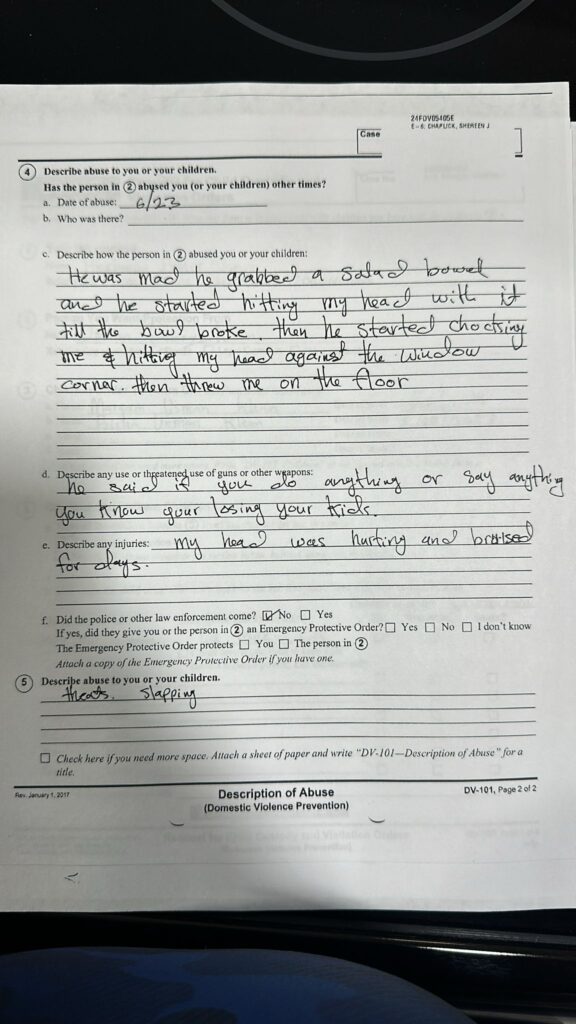 24FDV05405E
E-S: CHAPLICK, SHEREEN J
Case
4 Describe abuse to you or your children.
Has the person in 2 abused you (or your children) other times?
a. Date of abuse: 6/23
b. Who was there?
c. Describe how the person in 2 abused you or your children:
He was mad he grabbed a salad bowel
and he started hitting my head with it
till the bowl broke. then he started chocking
me & hitting my head against the window
corner. then threw me on the floor
d. Describe any use or threatened use of guns or other weapons:
he said if you do anything or say anything
you know your losing your kids.
e. Describe any injuries: my head was hurting and bruised
for days.
f. Did the police or other law enforcement come? ☑ No ☐ Yes
If yes, did they give you or the person in 2 an Emergency Protective Order? ☐ Yes ☐ No ☐ I don't know
The Emergency Protective Order protects ☐ You ☐ The person in 2
Attach a copy of the Emergency Protective Order if you have one.
5 Describe abuse to you or your children.
threats. slapping
☐ Check here if you need more space. Attach a sheet of paper and write "DV-101—Description of Abuse" for a
title.
Rev. January 1, 2017
Description of Abuse
(Domestic Violence Prevention)
DV-101, Page 2 of 2